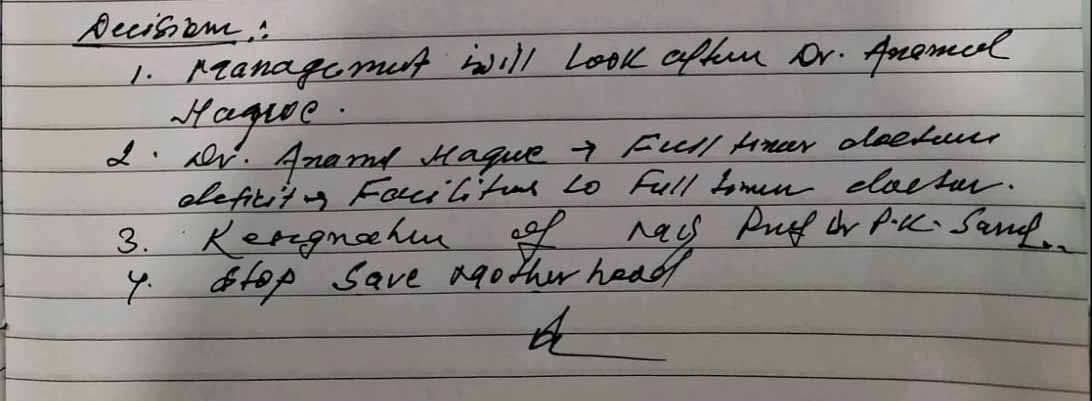 Decision:
1. Management will look after Dr. Anamul
Haque.
2. Dr. Anamul Haque → Full timer doctor
deficit → Facilities to Full timer doctor.
3. Resignation of Prof Dr P.K. 
4. Stop Save Motherhood